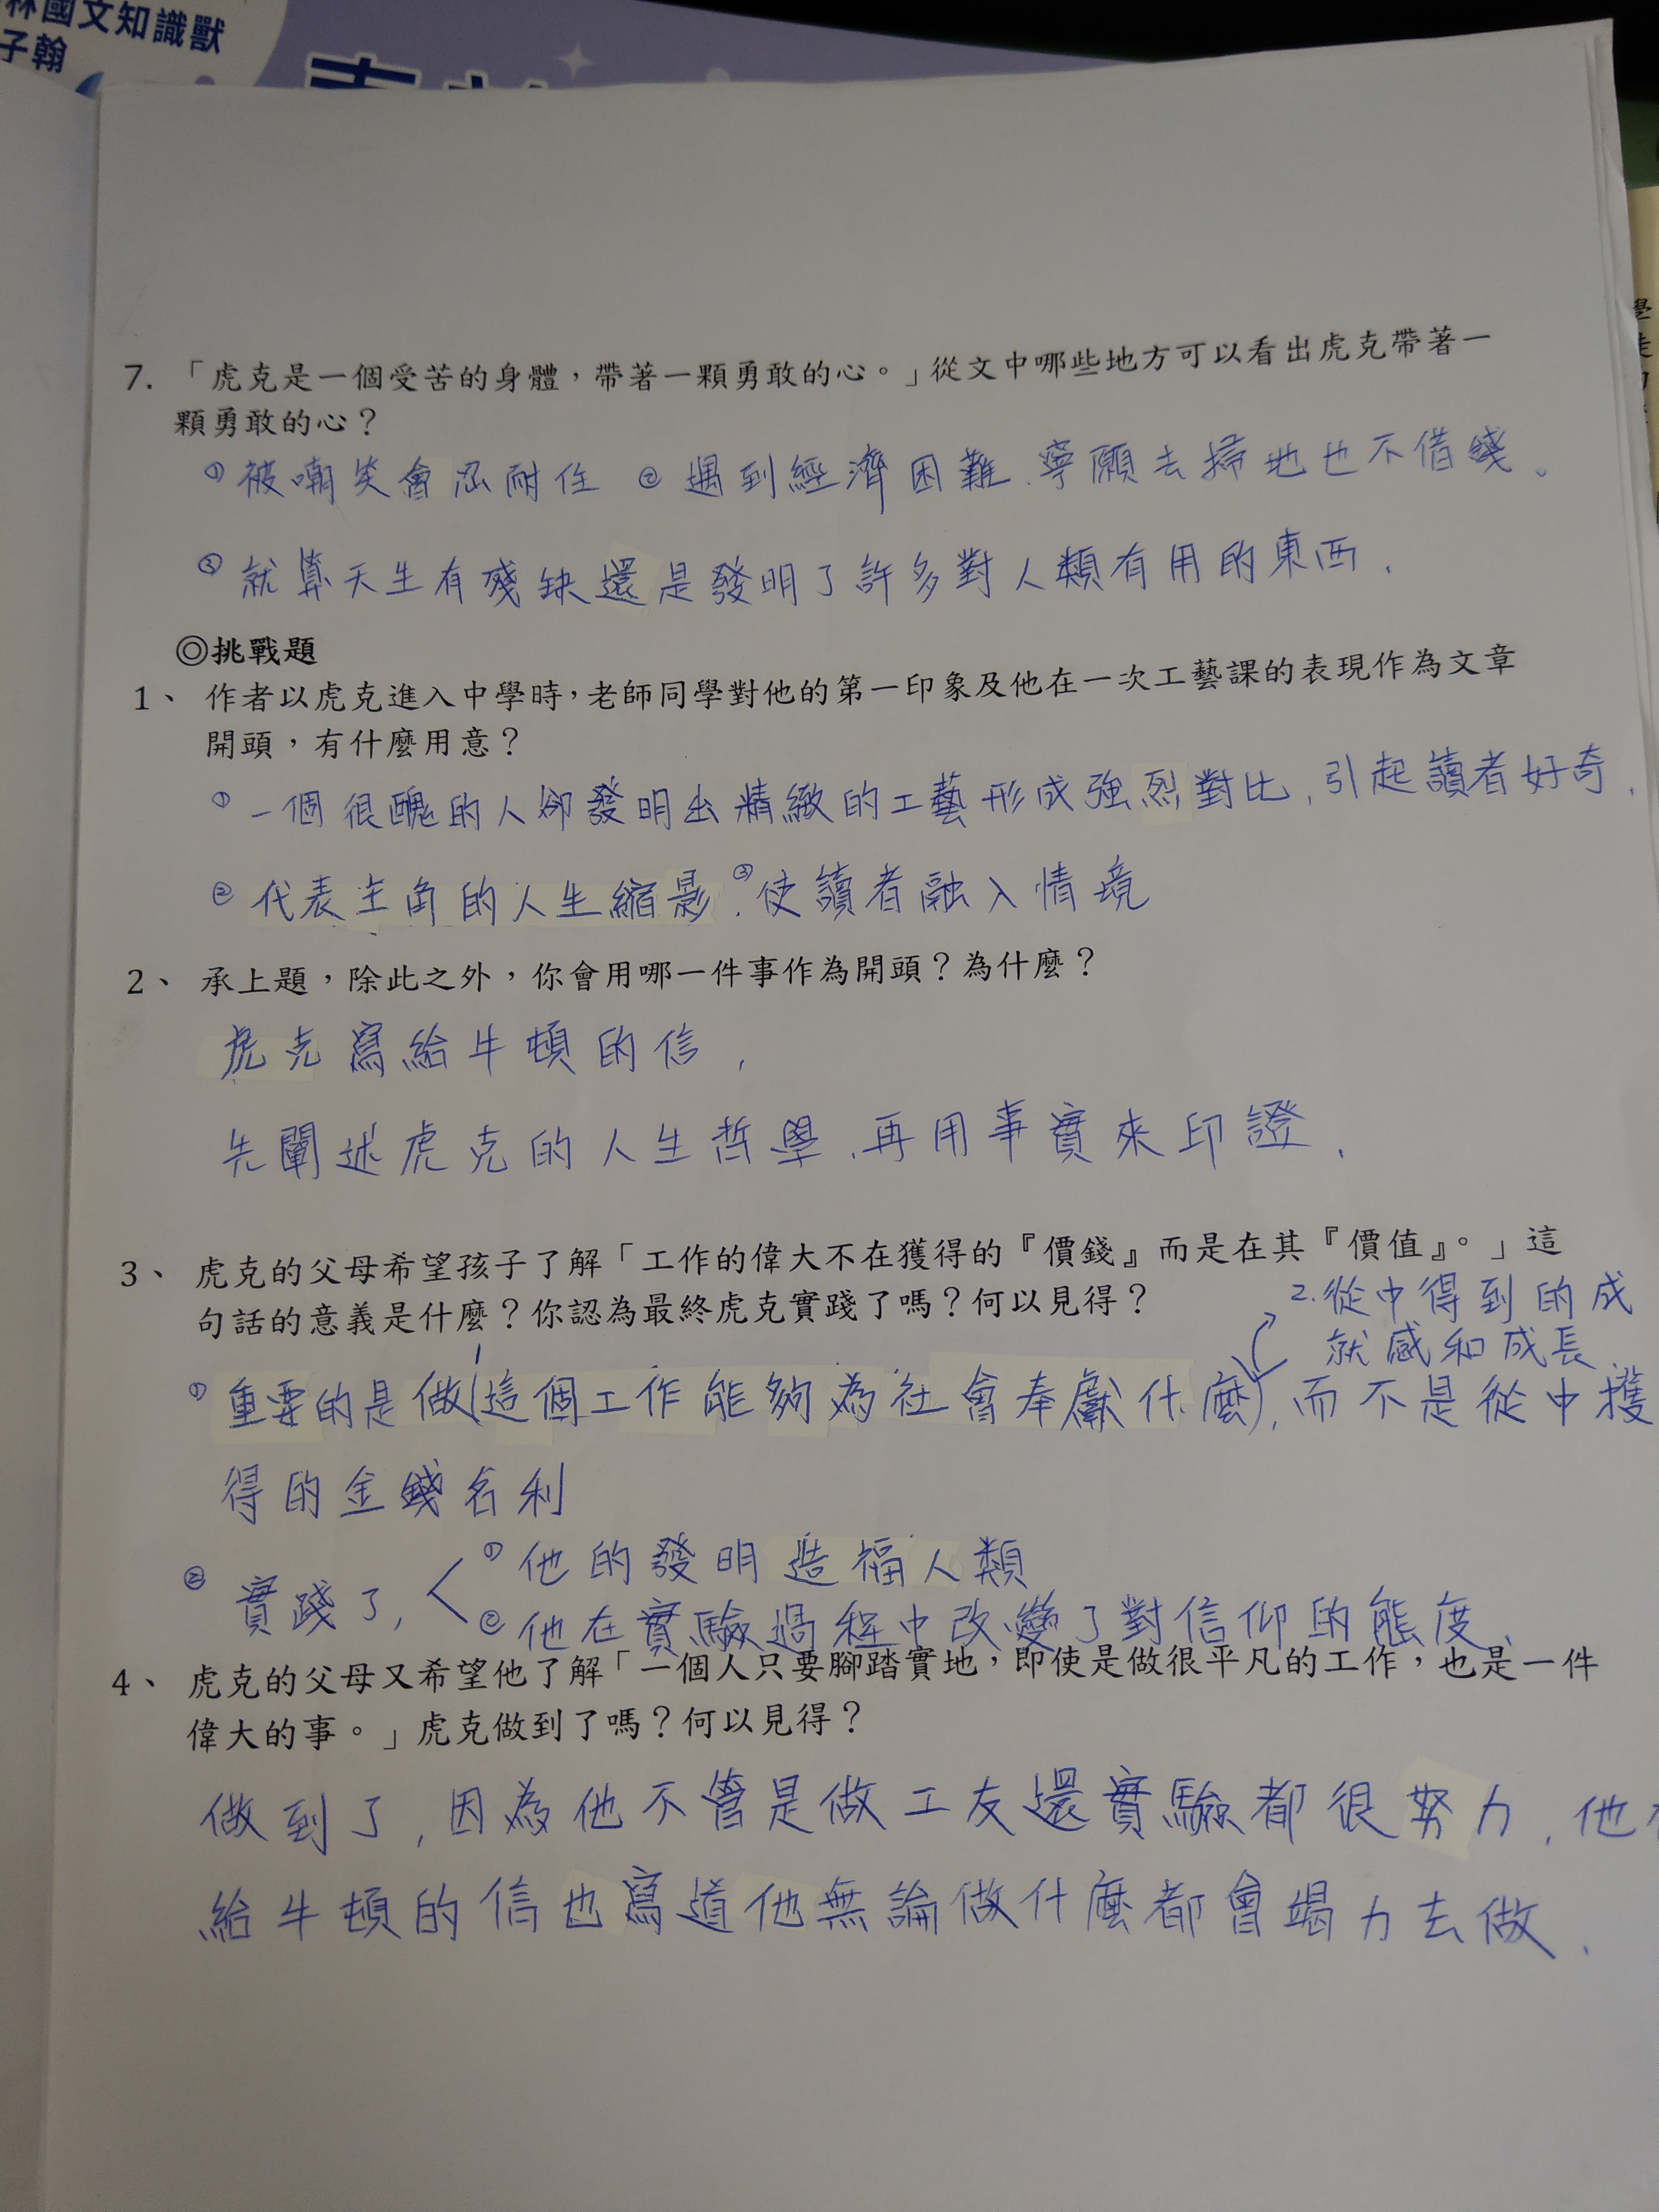 林國文知識獸
子翰
7. 「虎克是一個受苦的身體，帶著一顆勇敢的心。」從文中哪些地方可以看出虎克帶著一
顆勇敢的心？
① 被嘲笑會忍耐住 ② 遇到經濟困難、寧願去掃地也不借錢。
③ 就算天生有殘缺還是發明了許多對人類有用的東西.
◎挑戰題
1、 作者以虎克進入中學時，老師同學對他的第一印象及他在一次工藝課的表現作為文章
開頭，有什麼用意？
① 一個很醜的人卻發明出精緻的工藝形成強烈對比, 引起讀者好奇.
② 代表主角的人生縮影. ③ 使讀者融入情境
2、 承上題，除此之外，你會用哪一件事作為開頭？為什麼？
虎克寫給牛頓的信,
先闡述虎克的人生哲學.再用事實來印證.
3、 虎克的父母希望孩子了解「工作的偉大不在獲得的『價錢』而是在其『價值』。」這
句話的意義是什麼？你認為最終虎克實踐了嗎？何以見得？
2.從中得到的成
就感和成長
① 重要的是做(這個工作能夠為社會奉獻什麼), 而不是從中獲
得的金錢名利
② 實踐了, ① 他的發明造福人類
② 他在實驗過程中改變了對信仰的態度、
4、 虎克的父母又希望他了解「一個人只要腳踏實地，即使是做很平凡的工作，也是一件
偉大的事。」虎克做到了嗎？何以見得？
做到了, 因為他不管是做工友還實驗都很努力, 他
給牛頓的信也寫道他無論做什麼都會竭力去做.